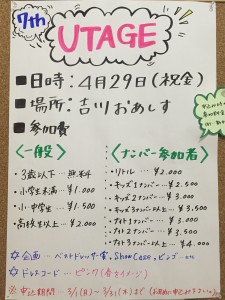 7th
UTAGE
■日時：4月29日(祝金)
■場所：吉川おあしす
■参加費
<一般>
・3歳以下…無料
・小学生未満…¥1.000
・小・中学生…¥1.500
・高校生以上…¥2.000
<ナンバー参加者>
・リトル…¥2.000
・キッズ1ナンバー…¥2.500
・キッズ2ナンバー…¥3.000
・キッズ3ナンバー以上…¥3.500
・ナイト1ナンバー…¥3.000
・ナイト2ナンバー…¥3.500
・ナイト3ナンバー以上…¥4.000
☆企画…ベストドレッサー賞、ShowCase、ビンゴ…etc
☆ドレスコード…ピンク(春をイメージ)
※申込期間…3/1(火)～3/31(木)まで